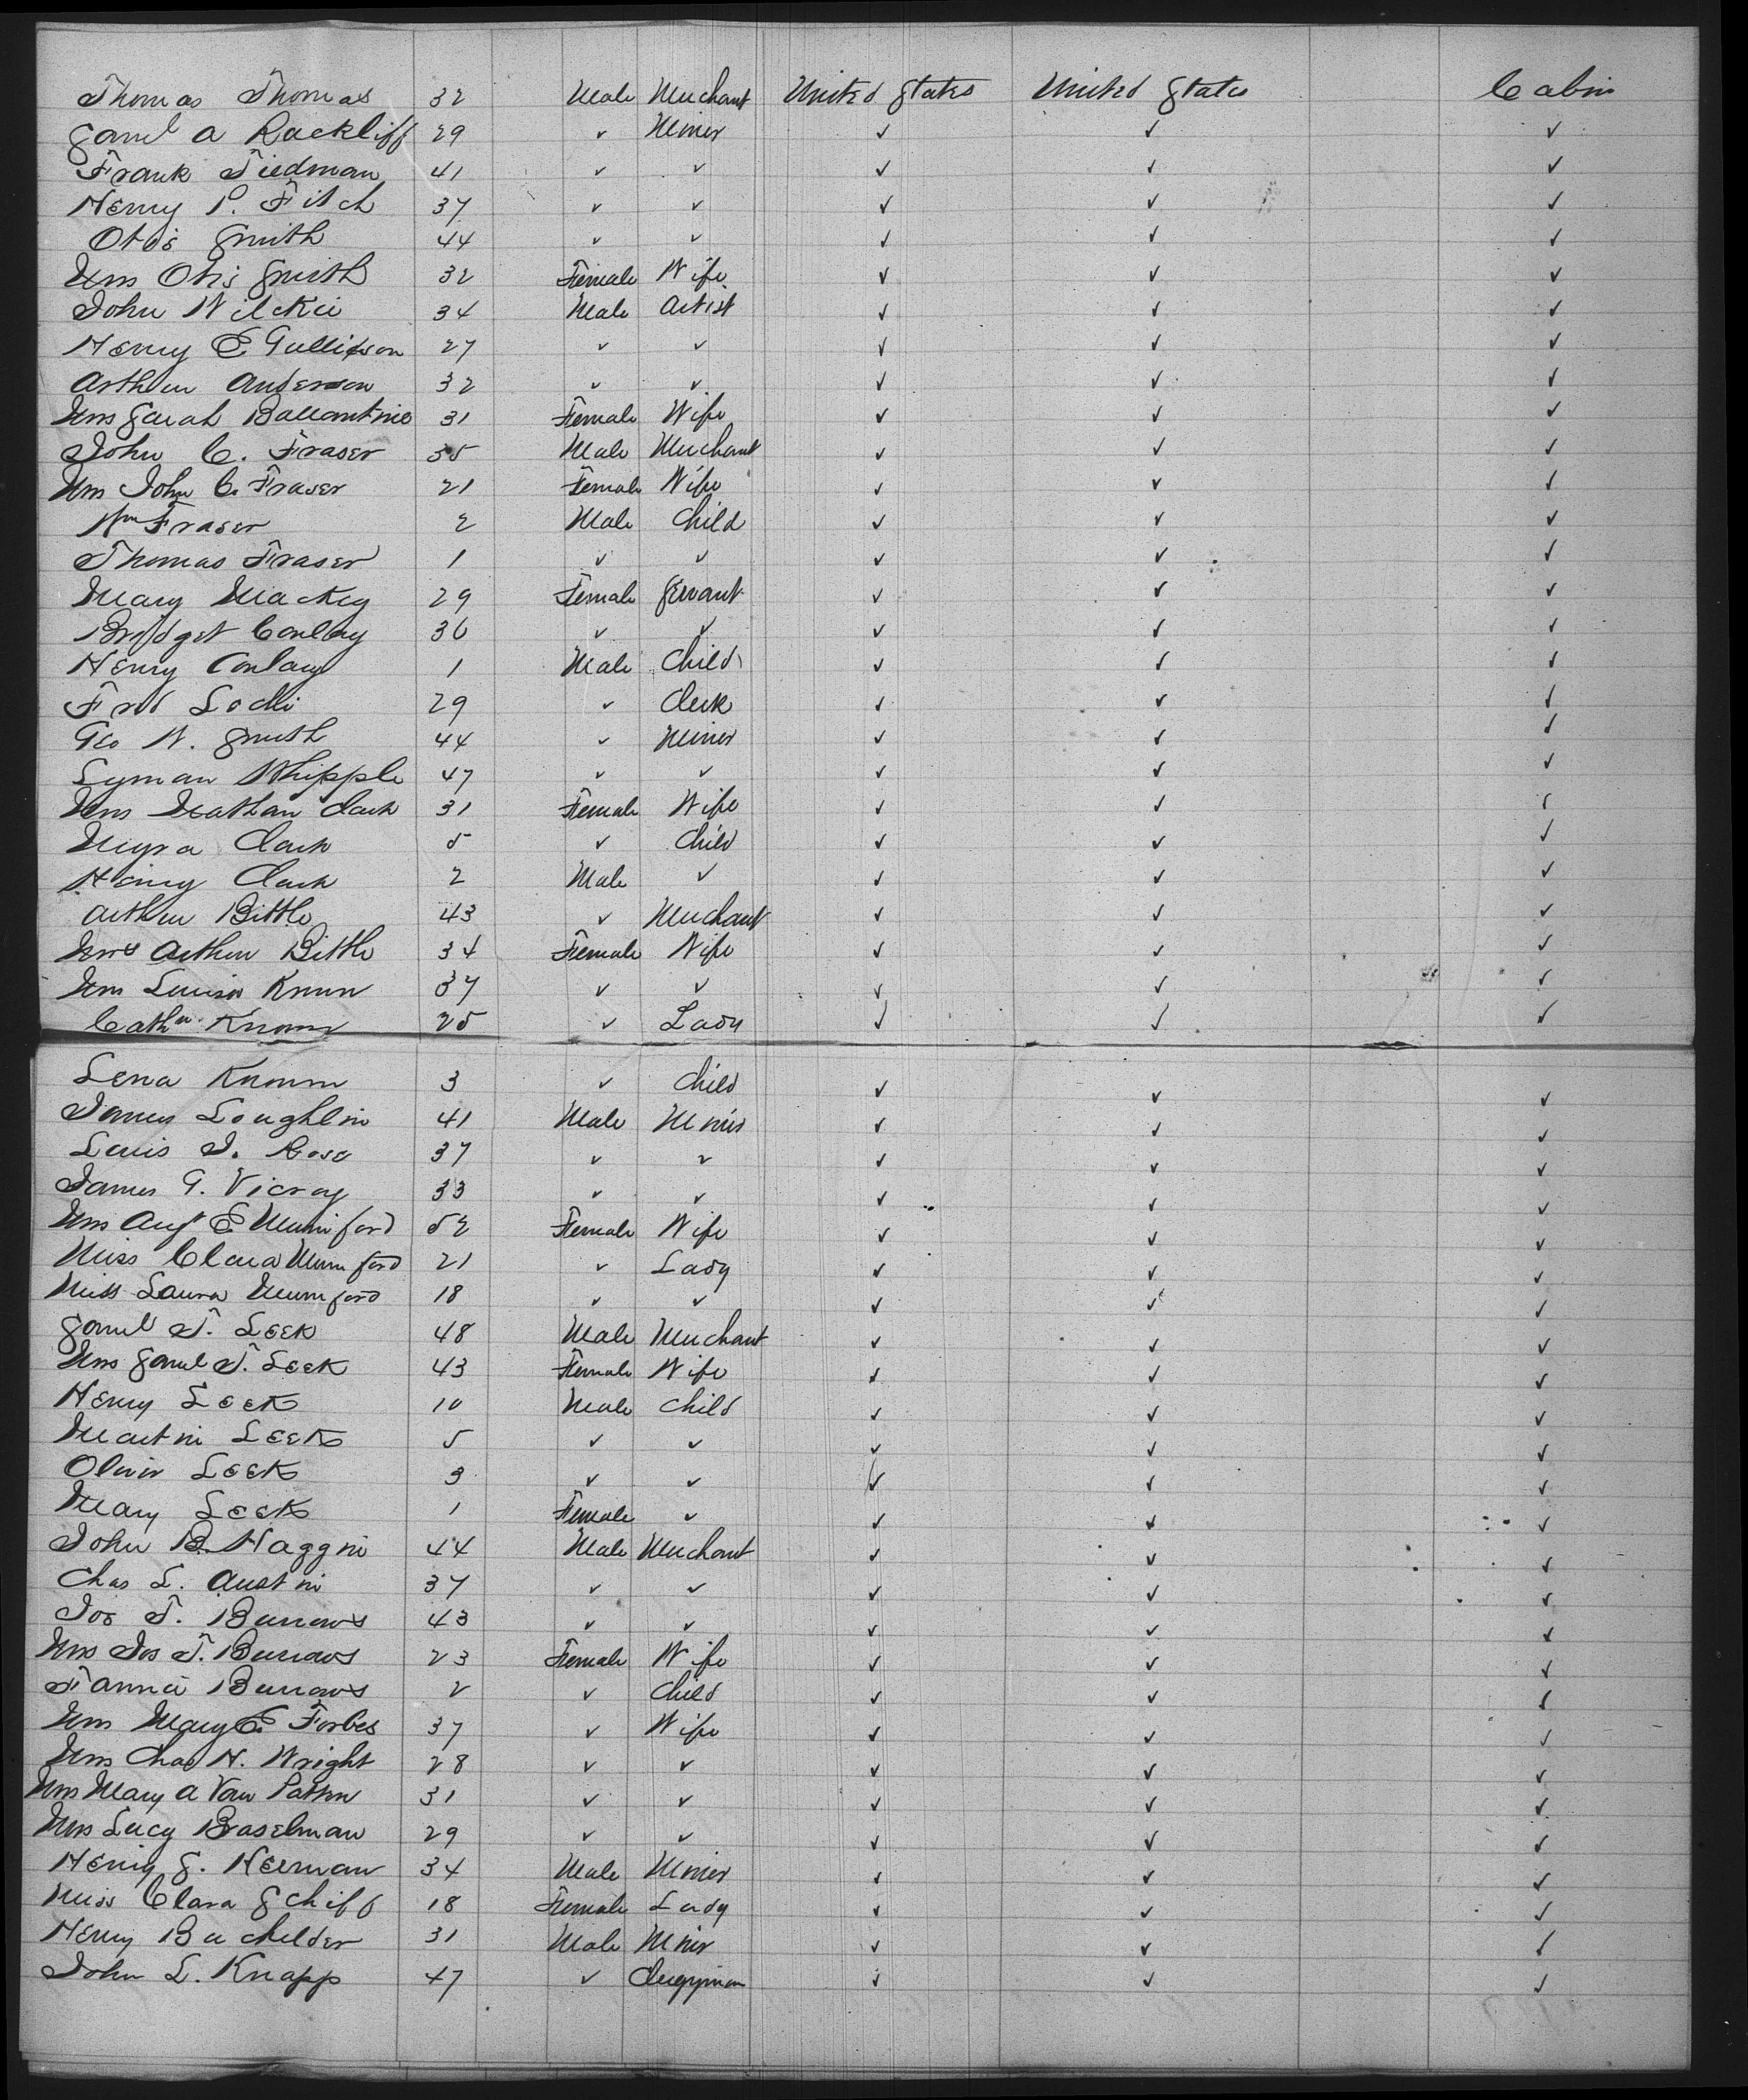 Thomas Thomas 32 Male Merchant United States United States Cabin
Saml A Rackliff 29 ✓ Miner ✓ ✓ ✓
Frank Tiedman 41 ✓ ✓ ✓ ✓ ✓
Henry P. Fitch 37 ✓ ✓ ✓ ✓ ✓
Otis Smith 44 ✓ ✓ ✓ ✓ ✓
Mrs Otis Smith 32 Female Wife ✓ ✓ ✓
John Wilkie 34 Male Artist ✓ ✓ ✓
Henry E Gullixson 27 ✓ ✓ ✓ ✓ ✓
Arthur Anderson 32 ✓ ✓ ✓ ✓ ✓
Mrs Sarah Ballantine 31 Female Wife ✓ ✓ ✓
John C. Fraser 35 Male Merchant ✓ ✓ ✓
Mrs John C. Fraser 21 Female Wife ✓ ✓ ✓
Wm Fraser 2 Male Child ✓ ✓ ✓
Thomas Fraser 1 ✓ ✓ ✓ ✓ ✓
Mary Mackey 29 Female Servant ✓ ✓ ✓
Bridget Conlay 36 ✓ ✓ ✓ ✓ ✓
Henry Conlay 1 Male Child ✓ ✓ ✓
Fred 29 ✓ Clerk ✓ ✓ ✓
Geo W. Smith 44 ✓ Miner ✓ ✓ ✓
Lyman Whipple 47 ✓ ✓ ✓ ✓ ✓
Mrs Nathan Clark 31 Female Wife ✓ ✓ ✓
Myra Clark 5 ✓ Child ✓ ✓ ✓
Henry Clark 2 Male ✓ ✓ ✓ ✓
Arthur Bittle 43 ✓ Merchant ✓ ✓ ✓
Mrs Arthur Bittle 34 Female Wife ✓ ✓ ✓
Mrs Louisa 37 ✓ ✓ ✓ ✓ ✓
Cathn 25 ✓ Lady ✓ ✓ ✓
Lena 3 ✓ Child ✓ ✓ ✓
James Loughlin 41 Male Miner ✓ ✓ ✓
Louis J. Rose 37 ✓ ✓ ✓ ✓ ✓
James G. Vicray 33 ✓ ✓ ✓ ✓ ✓
Mrs Augt E. Mumford 52 Female Wife ✓ ✓ ✓
Miss Clara Mumford 21 ✓ Lady ✓ ✓ ✓
Miss Laura Mumford 18 ✓ ✓ ✓ ✓ ✓
Saml T. Leek 48 Male Merchant ✓ ✓ ✓
Mrs Saml T. Leek 43 Female Wife ✓ ✓ ✓
Henry Leek 10 Male Child ✓ ✓ ✓
Martin Leek 5 ✓ ✓ ✓ ✓ ✓
Oliver Leek 3 ✓ ✓ ✓ ✓ ✓
Mary Leek 1 Female ✓ ✓ ✓ ✓
John B. Haggin 44 Male Merchant ✓ ✓ ✓
Chas L. Austin 37 ✓ ✓ ✓ ✓ ✓
Jos T. Burrows 43 ✓ ✓ ✓ ✓ ✓
Mrs Jos T. Burrows 23 Female Wife ✓ ✓ ✓
Fannie Burrows 2 ✓ Child ✓ ✓ ✓
Mrs Mary E. Forbes 37 ✓ Wife ✓ ✓ ✓
Mrs Chas H. Wright 28 ✓ ✓ ✓ ✓ ✓
Mrs Mary A Van Patten 31 ✓ ✓ ✓ ✓ ✓
Mrs Lucy Braselman 29 ✓ ✓ ✓ ✓ ✓
Henry S. Herman 34 Male Miner ✓ ✓ ✓
Miss Clara Schiff 18 Female Lady ✓ ✓ ✓
Henry Bachelder 31 Male Miner ✓ ✓ ✓
John L. Knapp 47 ✓ Clergyman ✓ ✓ ✓